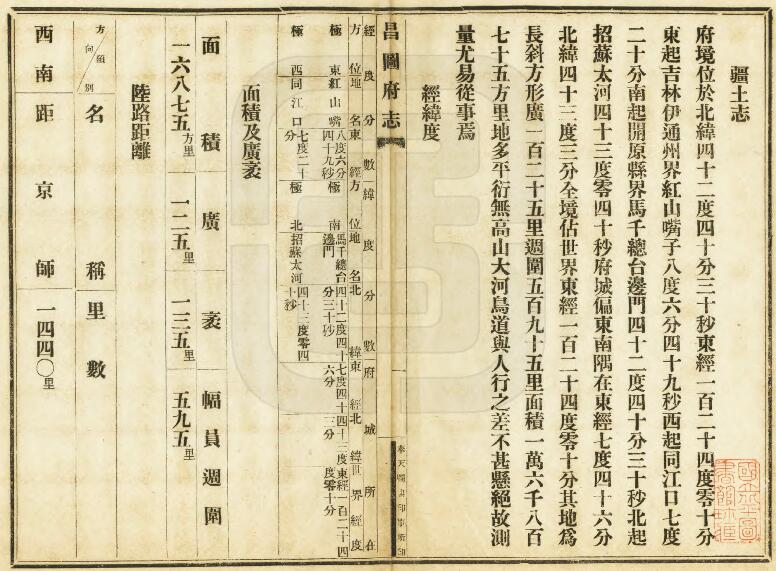 疆土志
府境位於北緯四十二度四十分三十秒東經一百二十四度零十分
東起吉林伊通州界紅山嘴子八度六分四十九秒西起同江口七度
二十分南起開原縣界馬千總台邊門四十二度四十分三十秒北起
招蘇太河四十三度零四十秒府城偏東南隅在東經七度四十六分
北緯四十三度三分全境佔世界東經一百二十四度零十分其地爲
長斜方形廣一百二十五里週圍五百九十五里面積一萬六千八百
七十五方里地多平衍無高山大河鳥道與人行之差不甚懸絕故測
量尤易從事焉
經緯度
昌圖府志
經度分數 緯度分數 府城所在
方位 地名 東經 方位 地名 北緯 東經 北緯 世界經度
極東 紅山嘴 八度六分四十九秒 極南 馬千總台邊門 四十二度四十分三十秒 七度四十六分 四十三度三分 東經一百二十四度零十分
極西 同江口 七度二十分 極北 招蘇太河 四十三度零四十秒
奉天圖書印刷所印
面積及廣袤
面積 廣 袤 幅員週圍
一六八七五方里 一二五里 一三五里 五九五里
陸路距離
方向 類別 名稱 里數
西南 距京師 一四四〇里